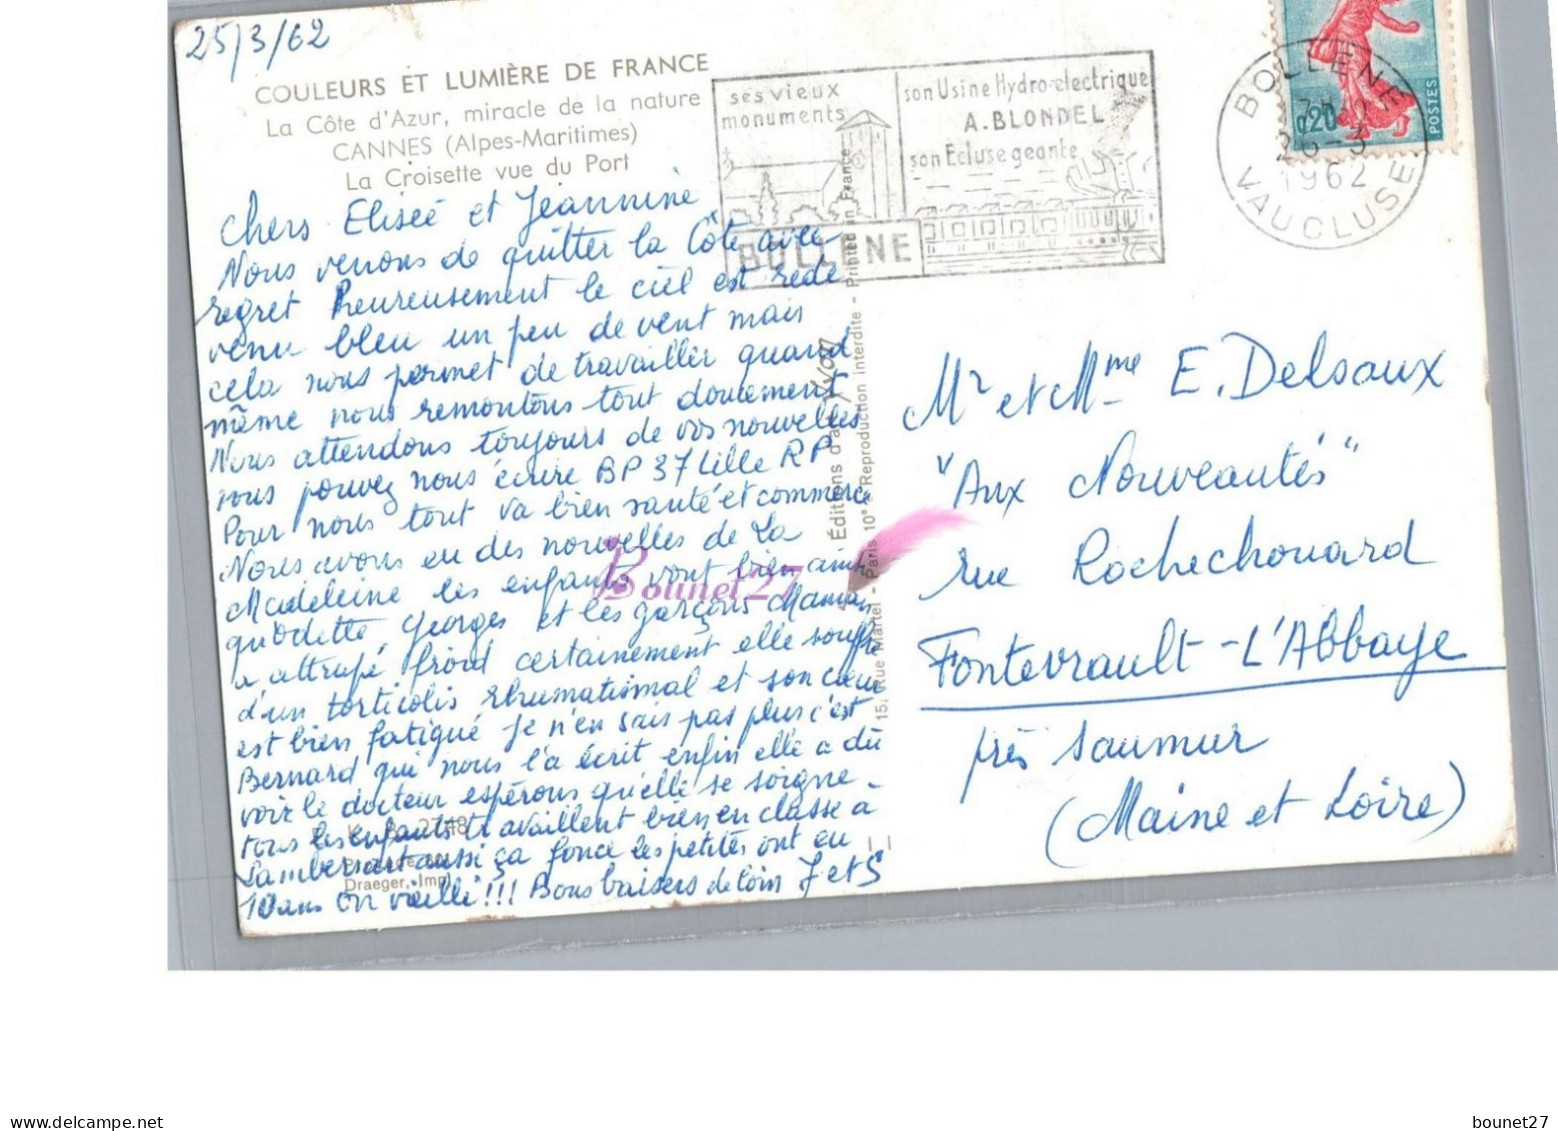 25/3/62
COULEURS ET LUMIÈRE DE FRANCE
La Côte d'Azur, miracle de la nature
CANNES (Alpes-Maritimes)
La Croisette vue du Port
Chers Eliseé et Jeannine
Nous venons de quitter la Côte avec
regret heureusement le ciel est rede
venu bleu un peu de vent mais
cela nous permet de travailler quand
même nous remontons tout doucement
Nous attendons toujours de vos nouvelles
vous pouvez nous écrire BP 37 Lille RP
Pour nous tout va bien santé et commerce
Nous avons eu des nouvelles de La
Madeleine les enfants vont bien ainsi
qu'Odette, Georges et les garçons Maman
a attrapé froid certainement elle souffre
d'un torticolis rhumatismal et son cœur
est bien fatigué je n'en sais pas plus c'est
Bernard qui nous l'a écrit enfin elle a dû
voir le docteur espérons qu'elle se soigne -
tous les enfants travaillent bien en classe à
Lambersart aussi ça fonce les petites ont eu
10 ans on vieilli !!! Bons baisers de loin J et S
Draeger, Imp.
Éditions d'art YVON
15, Rue Martel - Paris 10e - Reproduction interdite - Printed in France
ses vieux
monuments
son Usine Hydro-électrique
A. BLONDEL
son Ecluse geante
BOLLENE
BOLLENE
26-3
1962
VAUCLUSE
0,20
POSTES
Mr et Mme E. Delsaux
"Aux Nouveautés"
rue Rochechouard
Fontevrault-L'Abbaye
près Saumur
(Maine et Loire)
Bounet27
bounet27